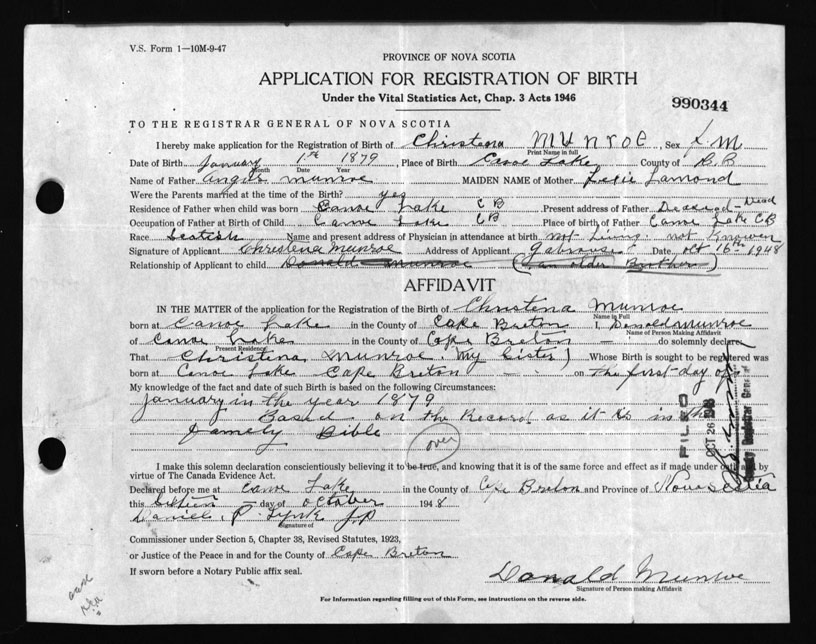 V.S. Form 1—10M-9-47
PROVINCE OF NOVA SCOTIA
APPLICATION FOR REGISTRATION OF BIRTH
Under the Vital Statistics Act, Chap. 3 Acts 1946
990344
TO THE REGISTRAR GENERAL OF NOVA SCOTIA
I hereby make application for the Registration of Birth of Christena Munroe, Sex
Print Name in full
Date of Birth January 1st 1879, Place of Birth Canoe Lake County of C.B
Month Date Year
Name of Father Angus Munroe MAIDEN NAME of Mother Lexie Lamond
Were the Parents married at the time of the Birth? yes
Residence of Father when child was born Canoe Lake CB Present address of Father Deceased - Dead
Occupation of Father at Birth of Child Canoe Lake CB Place of birth of Father Canoe Lake CB
Race Scotish Name and present address of Physician in attendance at birth not Living not known
Signature of Applicant Christena Munroe Address of Applicant Gabarouse Date Oct 16th 1948
Relationship of Applicant to child Donald Munroe (an older Brother)
AFFIDAVIT
IN THE MATTER of the application for the Registration of the Birth of Christena Munroe
Name in Full
born at Canoe Lake in the County of Cape Breton I, Donald Munroe
Name of Person Making Affidavit
of Canoe Lake in the County of Cape Breton do solemnly declare
Present Residence
That Christena Munroe (My Sister) Whose Birth is sought to be registered was
born at Canoe Lake Cape Breton on the first day of
My knowledge of the fact and date of such Birth is based on the following Circumstances:
January in the year 1879
Based on the Record as it is in the
Famely Bible
(over)
FILED
OCT 26 1948
Deputy Registrar General
I make this solemn declaration conscientiously believing it to be true, and knowing that it is of the same force and effect as if made under oath and by
virtue of The Canada Evidence Act.
Declared before me at Canoe Lake in the County of Cape Breton and Province of Nova Scotia
this day of October 1948
Daniel P. Lynk J.P
Signature of
Commissioner under Section 5, Chapter 38, Revised Statutes, 1923,
or Justice of the Peace in and for the County of Cape Breton
If sworn before a Notary Public affix seal.
Donald Munroe
Signature of Person making Affidavit
For Information regarding filling out of this Form, see instructions on the reverse side.